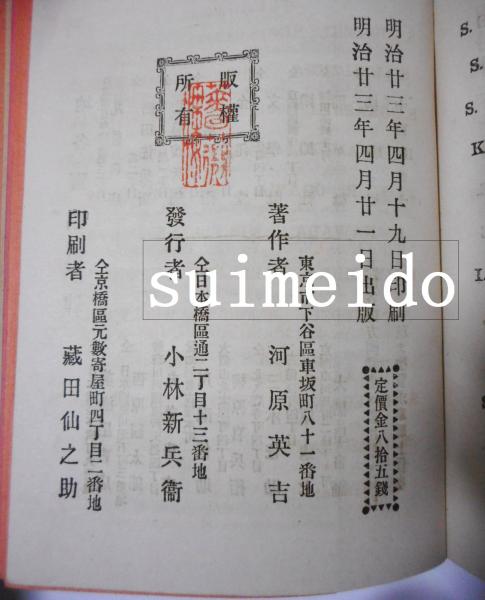 明治廿三年四月十九日印刷
明治廿三年四月廿一日出版
定價金八拾五錢
版權
所有
東京市下谷區車坂町八十一番地
著作者 河原英吉
仝日本橋區通二丁目十三番地
發行者 小林新兵衞
仝京橋區元數寄屋町四丁目二番地
印刷者 藏田仙之助
suimeido
S.
S.
S.
K